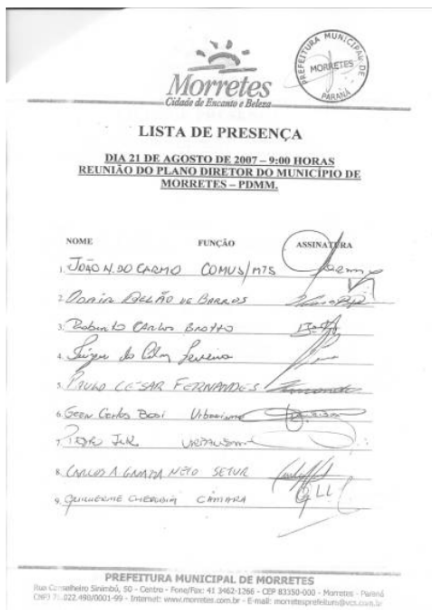 Morretes
Cidade de Encanto e Beleza
PREFEITURA MUNICIPAL DE
MORRETES
PARANÁ
LISTA DE PRESENÇA
DIA 21 DE AGOSTO DE 2007 – 9:00 HORAS
REUNIÃO DO PLANO DIRETOR DO MUNICÍPIO DE
MORRETES – PDMM.
NOME FUNÇÃO ASSINATURA
1. JOÃO N. DO CARMO COMUS/MTS
2. DE BARROS
3. Roberto Carlos Brotto
4.
5. PAULO CESAR FERNANDES
6. Carlos Urbanismo
7. URBANISMO
8. CARLOS A GNATA NETO SETUR
9. GUILHERME CÂMARA
PREFEITURA MUNICIPAL DE MORRETES
Rua Conselheiro Sinimbú, 50 - Centro - Fone/Fax: 41 3462-1266 - CEP 83350-000 - Morretes - Paraná
Internet: www.morretes.com.br - E-mail: